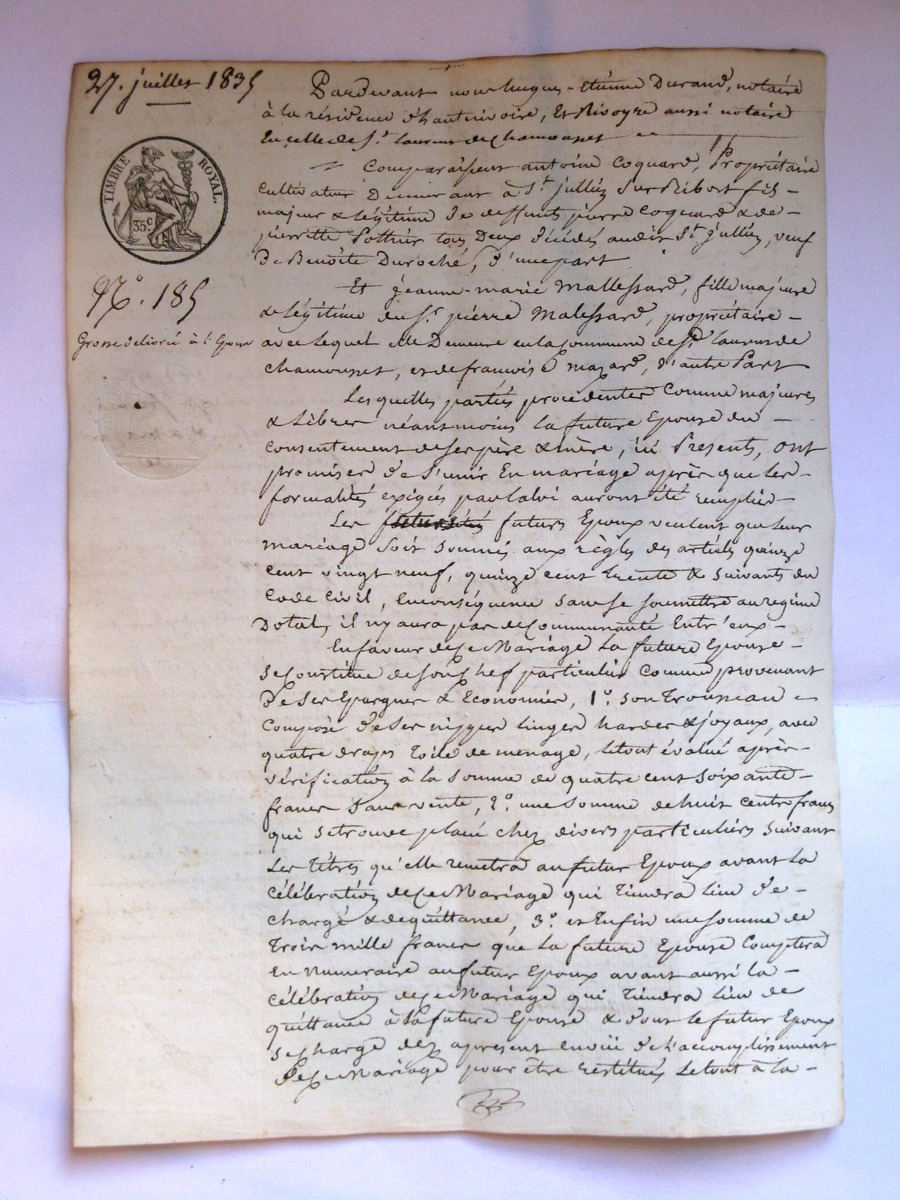 27. juillet 1835
TIMBRE ROYAL.
35 c.
N°. 185
Grosse délivrée à l'Epoux
Pardevant nous hugues-étienne Durand, notaire
à la résidence d'hauterivoire, Et Rivoyre aussi notaire
En celle de St. laurent de chamousset
Comparaissent antoine Coquard, Propriétaire
cultivateur Demeurant à St. jullien Sur Bibost fils
majeur & légitime de deffunts pierre Coquard & de
pierrette Pothier tous Deux décédés audit St. jullien, veuf
De Benoîte Duroché, d'une part
Et jeanne-marie Mallessard, fille majeure
& légitime du Sr. pierre Malessard, propriétaire
avec lequel elle Demeure en la commune de St. laurent de
chamousset, et de françoise mazard, d'autre Part
Les quelles parties procédentes Comme majeures
& Libres néantmoins la future Epouse du
consentement de ses père & mère, ici Présents, ont
promises de S'unir En mariage après que les
formalités exigées par la loi auront été remplies
Les futurs Epoux veulent que leur
mariage soit soumis aux règles des articles quinze
cent vingt neuf, quinze cent trente & suivants du
Code Civil, En conséquence sans se soumettre au régime
Dotal, il n'y aura pas de Communauté Entr'eux
En faveur de ce Mariage la future Epouse
se constitue de son chef particulier comme provenant
de ses Epargnes & Economies, 1°. son Trousseau
Composé de ses nippes linges hardes & joyaux, avec
quatre draps toile de menage, le tout évalué après
vérification à la somme de quatre cent soixante
francs sans vente, 2°. une somme de huit cents francs
qui se trouve placée chez divers particuliers suivant
Les Titres qu'elle remettra au futur Epoux avant la
célébration de ce Mariage qui tiendra lieu de
charge & de quittance, 3°. et Enfin une somme de
Trois mille francs que la future Epouse Comptera
En numéraire au futur Epoux avant aussi la
célébration de ce Mariage qui tiendra lieu de
quittance à la future Epouse & dont le futur Epoux
se charge dès apresent envers de l'accomplissement
de ce Mariage pour être restitués le tout à la